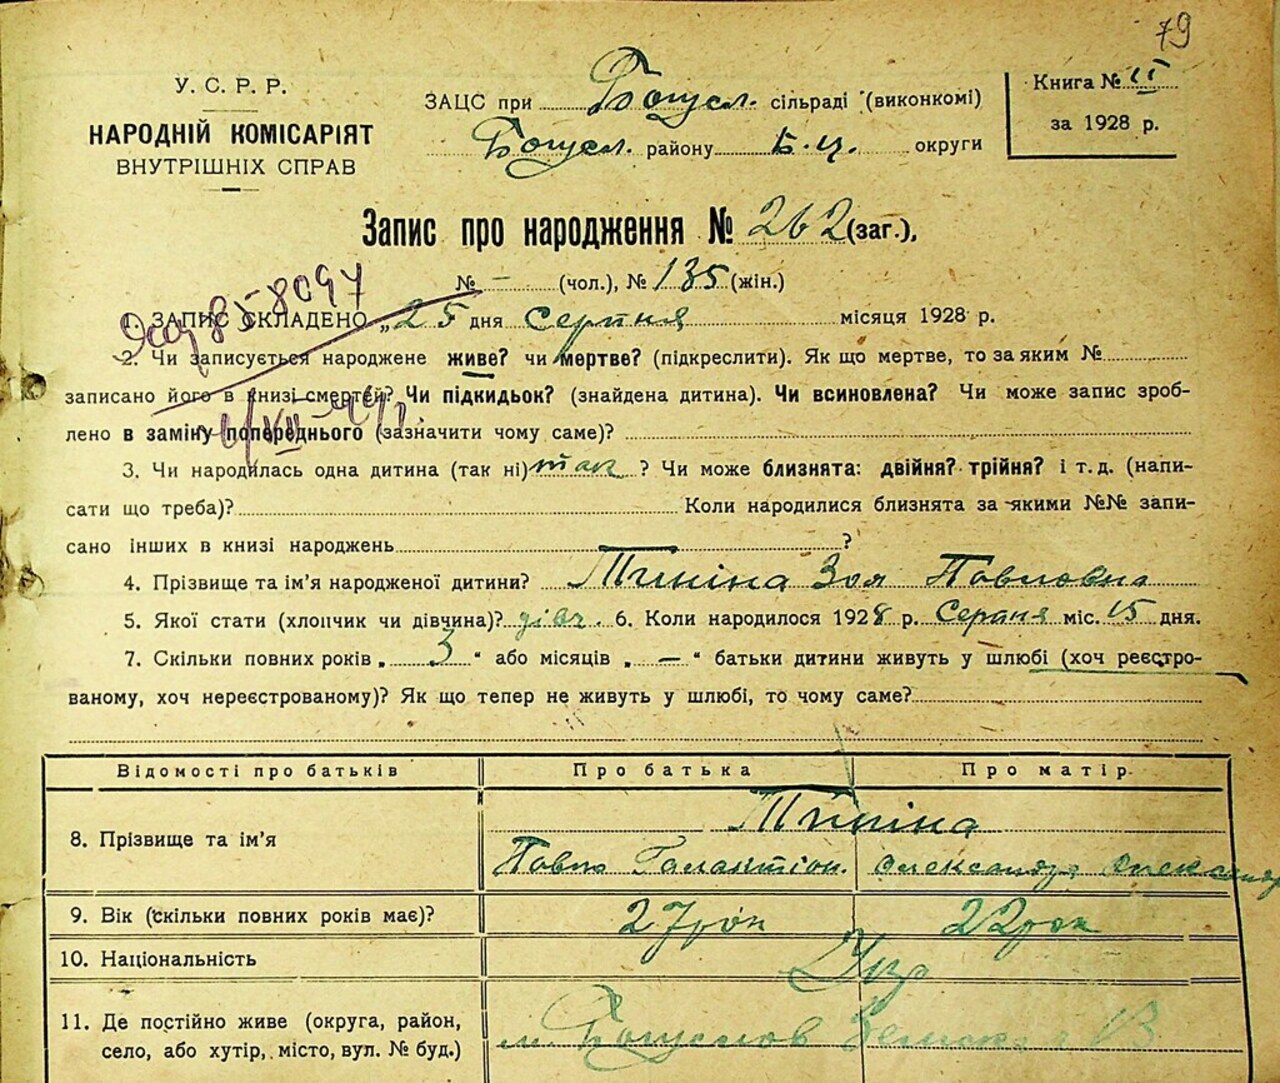 79
У. С. Р. Р.
НАРОДНІЙ КОМІСАРІЯТ
ВНУТРІШНІХ СПРАВ
ЗАЦС при Богусл. сільраді (виконкомі)
Богусл. району Б.Ц. округи
Книга № II
за 1928 р.
Запис про народження № 262 (заг.),
№ – (чол.), № 135 (жін.)
1. ЗАПИС СКЛАДЕНО „25 дня Серпня місяця 1928 р.
2. Чи записується народжене живе? чи мертве? (підкреслити). Як що мертве, то за яким №
записано його в книзі смертей? Чи підкидьок? (знайдена дитина). Чи всиновлена? Чи може запис зроб-
лено в заміну попереднього (зазначити чому саме)?
3. Чи народилась одна дитина (так ні) так ? Чи може близнята: двійня? трійня? і т. д. (напи-
сати що треба)? Коли народилися близнята за якими №№ запи-
сано інших в книзі народжень ?
4. Прізвище та ім’я народженої дитини? Зоя Павловна
5. Якої стати (хлопчик чи дівчина)? дівч. 6. Коли народилося 1928 р. Серпня міс. 15 дня.
7. Скільки повних років „ 3 “ або місяців „ — “ батьки дитини живуть у шлюбі (хоч реєстро-
ваному, хоч нереєстрованому)? Як що тепер не живуть у шлюбі, то чому саме?
Відомості про батьків Про батька Про матір
8. Прізвище та ім’я
Павло Галактіон. Олександра
9. Вік (скільки повних років має)? 27 рок 22 рок
10. Національність Укр
11. Де постійно живе (округа, район,
село, або хутір, місто, вул. № буд.) м.